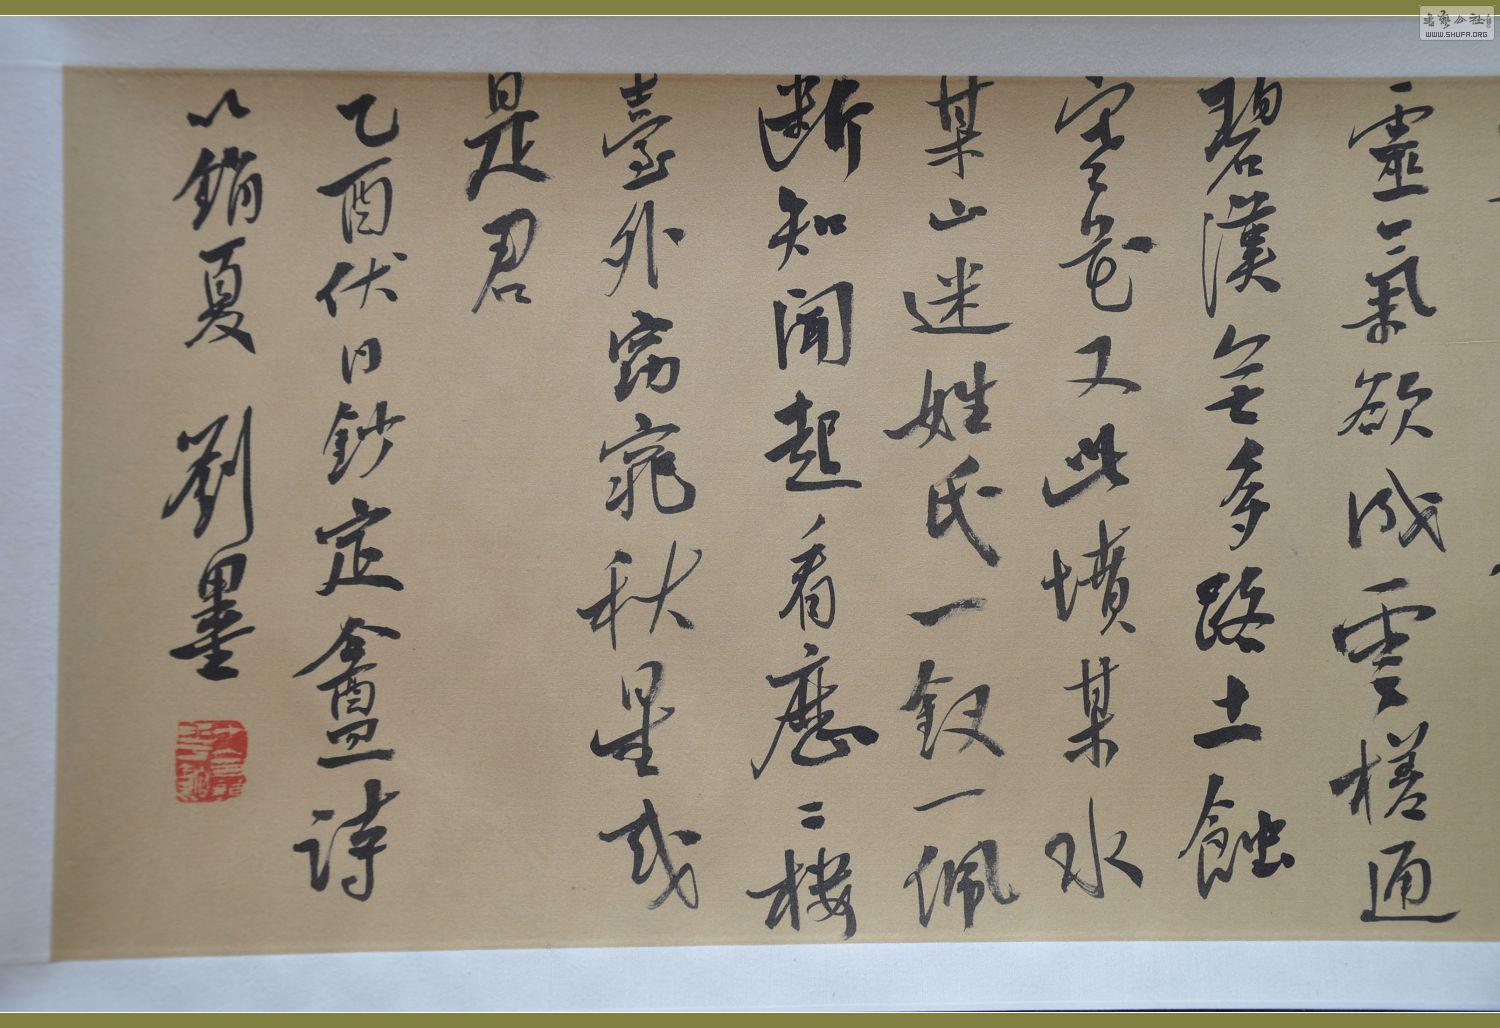 靈氣欲成雲槎通
碧漢無多路土蝕
寒花又此墳某水
某山迷姓氏一釵一佩
斷知聞起看歷二樓
臺外窈窕秋星或
是君
乙酉伏日鈔定盦詩
以銷夏 劉墨
WWW.SHUFA.ORG